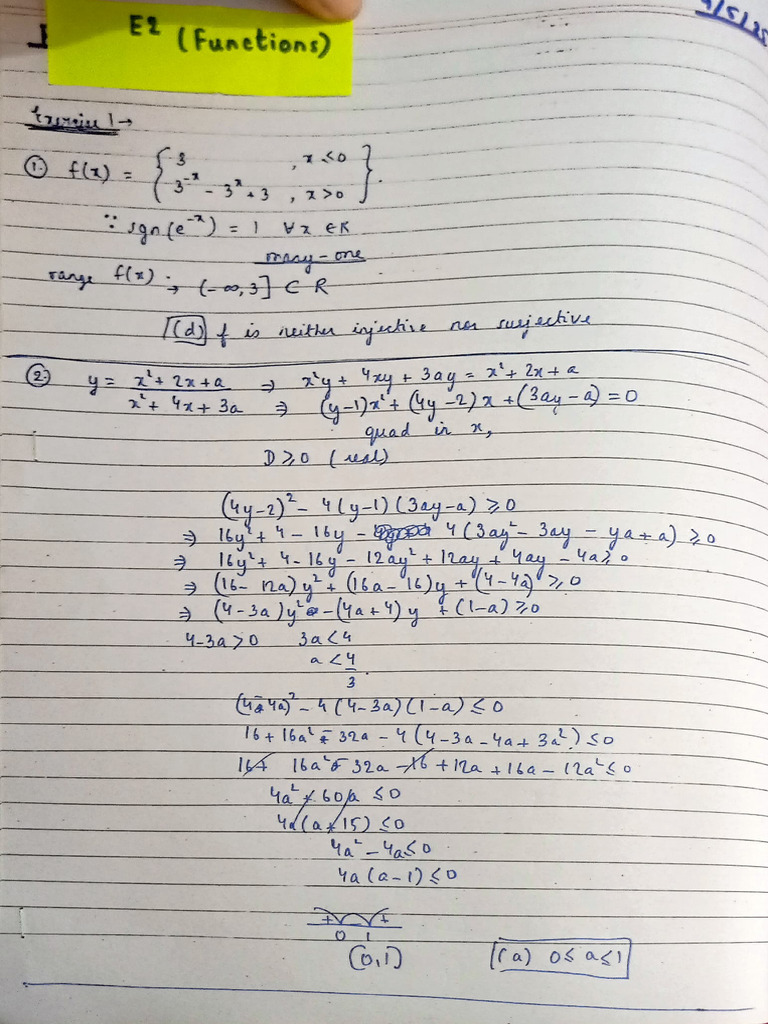 9/5/25
E2 (Functions)
Exercise 1 →
① f(x) = { 3 , x ≤ 0
3^-x - 3^x + 3 , x > 0 }.
∵ sgn(e^-x) = 1 ∀ x ∈ R
many-one
range f(x) → (-∞, 3] ⊂ R
(d) f is neither injective nor surjective
② y = (x² + 2x + a)/(x² + 4x + 3a) ⇒ x²y + 4xy + 3ay = x² + 2x + a
⇒ (y-1)x² + (4y-2)x + (3ay-a) = 0
quad in x,
D ≥ 0 (real)
(4y-2)² - 4(y-1)(3ay-a) ≥ 0
⇒ 16y² + 4 - 16y - 4(3ay² - 3ay - ya + a) ≥ 0
⇒ 16y² + 4 - 16y - 12ay² + 12ay + 4ay - 4a ≥ 0
⇒ (16 - 12a)y² + (16a - 16)y + (4 - 4a) ≥ 0
⇒ (4-3a)y² - (4a+4)y + (1-a) ≥ 0
4-3a > 0 3a < 4
a < 4/3
(4-4a)² - 4(4-3a)(1-a) ≤ 0
16 + 16a² - 32a - 4(4 - 3a - 4a + 3a²) ≤ 0
16 + 16a² - 32a - 16 + 12a + 16a - 12a² ≤ 0
4a² + 60a ≤ 0
4a(a + 15) ≤ 0
4a² - 4a ≤ 0
4a(a-1) ≤ 0
+ +
0 1
[0,1] (a) 0 ≤ a ≤ 1